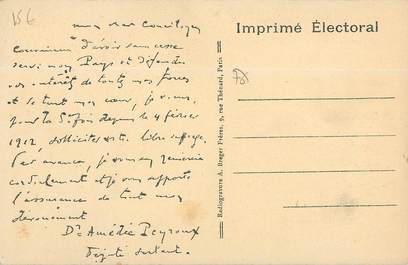 156
mon cher Concitoyen
Convaincu d'avoir sans cesse
servi mon Pays et défendu
vos intérêts de toutes mes forces
et de tout mon cœur, je viens,
pour la 5e fois depuis le 4 février
1912, solliciter votre libre suffrage.
Par avance, je vous en remercie
cordialement et je vous apporte
l'assurance de tout mon
dévouement
Dr Amédée Peyroux
Député sortant.
Radiogravure A. Breger Frères, 9, rue Thénard, Paris
Imprimé Électoral